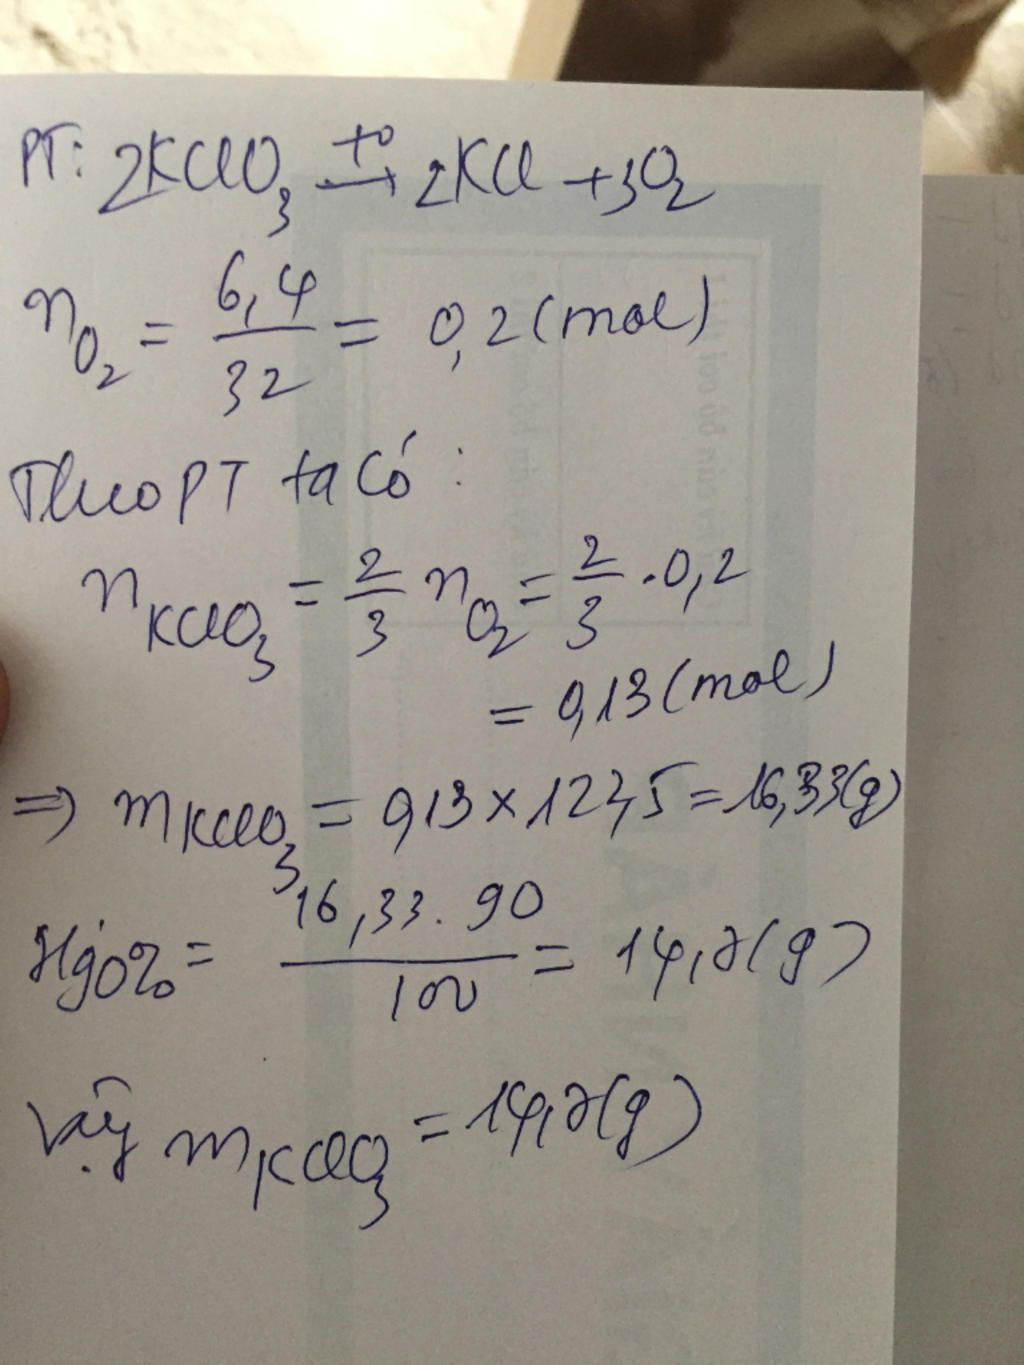 PT: 2KClO3 t° → 2KCl + 3O2
nO2 = 6,4 / 32 = 0,2 (mol)
Theo PT ta có :
nKClO3 = 2/3 nO2 = 2/3 . 0,2
= 0,13 (mol)
=> mKClO3 = 0,13 x 122,5 = 16,33 (g)
H90% = 16,33 . 90 / 100 = 14,7 (g)
Vậy mKClO3 = 14,7 (g)